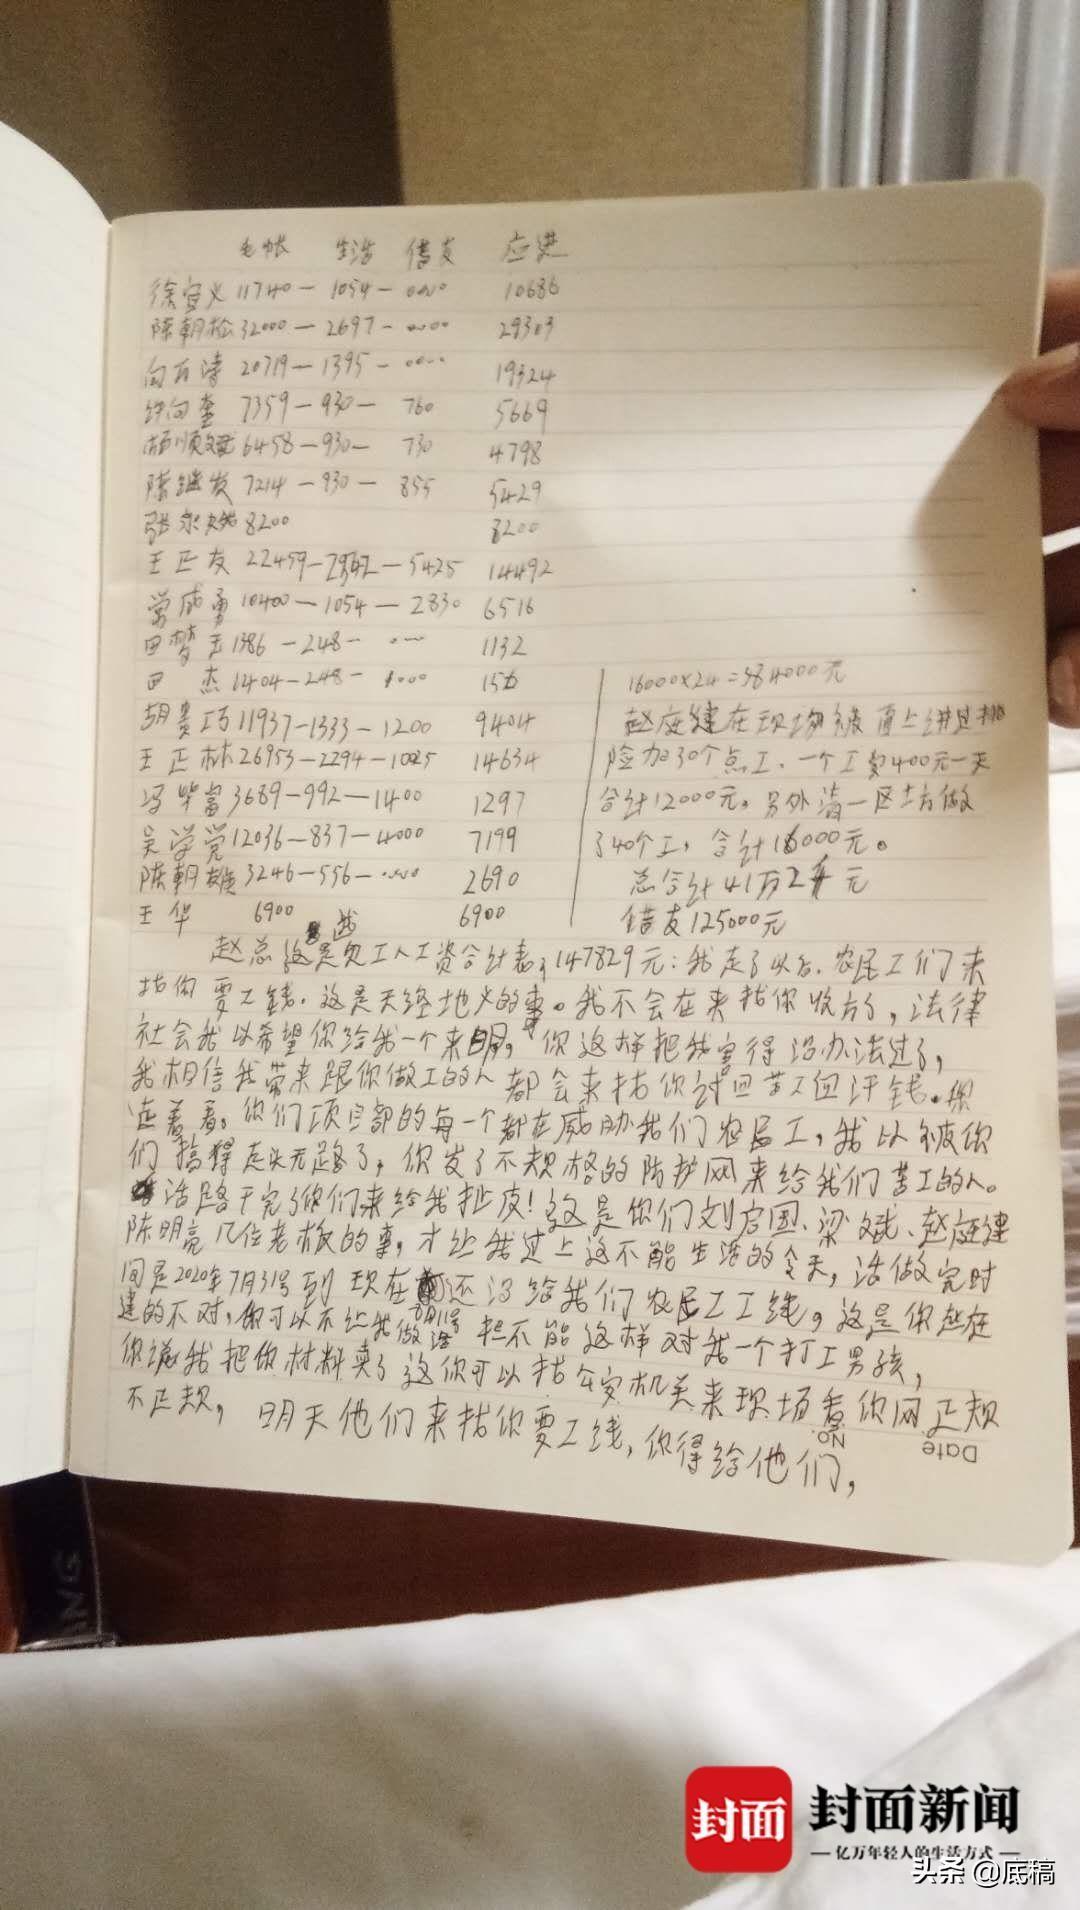 毛帐 生活 借支 应进
徐宜义 11740— 1054— 0000 10686
陈朝松 32000— 2697— 0000 29303
向右涛 20719—1395— 0000 19324
许向奎 7359—930— 760 5669
胡顺斌 6458—930— 730 4798
陈继发 7214—930— 855 5429
张永 8200 8200
王正友 22459— —5425 14492
常成勇 10400—1054—2830 6516
田梦玉 1386—248— 1132
田 杰 1404—248— 0000
胡贵巧 11937-1333-1200 9404
王正林 26953-2294-1025 14634
冯毕富 3689—992—1400 1297
吴学党 12036—837—4000 7199
陈朝雄 3246—556— 0000 2690
王华 6900 6900
16000×24=384000元
赵庭建在现场被 进过排
险加30个点工、一个工安400元一天
合计12000元。另外清一区工坊做
了40个工，合计16000元。
总合计41万2千元
借支125000元
赵总这是欠工人工资合计表，147829元：我走了以后、农民工们来
找你要工钱，这是天经地义的事。我不会在来找你收方了，法律
社会我以希望你给我一个来明，你这样把我害得没办法过了，
我相信我带来跟你做工的人都会来找你讨回苦工血汗钱。你
等着看。你们项目部的每一个都在威胁我们农民工，我以被你
们搞得走头无路了，你发了不规格的防护网来给我们苦工的人。
活路干完了你们来给我扯皮！这是你们刘启国、梁斌、赵庭建
陈明亮几位老板的事，才让我过上这不能生活的今天，活做完时
间是2020年7月31号到现在 还没给我们农民工工线，这是你赵庭
建的不对，你可以不让我做活 担不能这样对我一个打工男孩，
你说我把你材料卖了这你可以找公安机关来现场看你网正规
不正规，明天他们来找你要工线，你得给他们，
No.
Date
NG
封面
封面新闻
—亿万年轻人的生活方式—
头条 @底稿